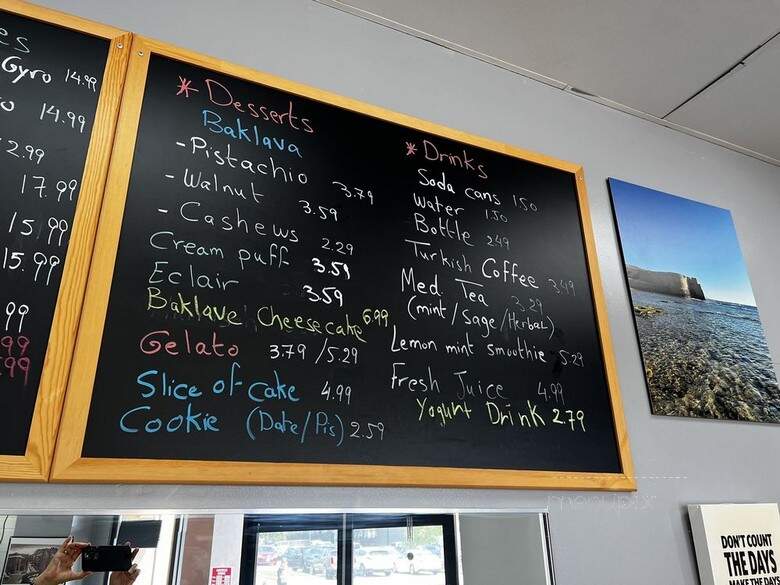 es
Gyro 14.99
o 14.99
2.99
17.99
15.99
15.99
99
99
99
* Desserts
Baklava
- Pistachio 3.79
- Walnut 3.59
- Cashews 2.29
Cream puff 3.59
Eclair 3.59
Baklave Cheesecake 6.99
Gelato 3.79 / 5.29
Slice of cake 4.99
Cookie (Date/Pis) 2.59
* Drinks
Soda cans 1.50
Water 1.50
Bottle 2.49
Turkish Coffee 3.49
Med Tea 3.29
(mint/Sage/Herbal)
Lemon mint smoothie 5.29
Fresh Juice 4.99
Yogurt Drink 2.79
DON'T COUNT
THE DAYS
MAKE THE DAYS